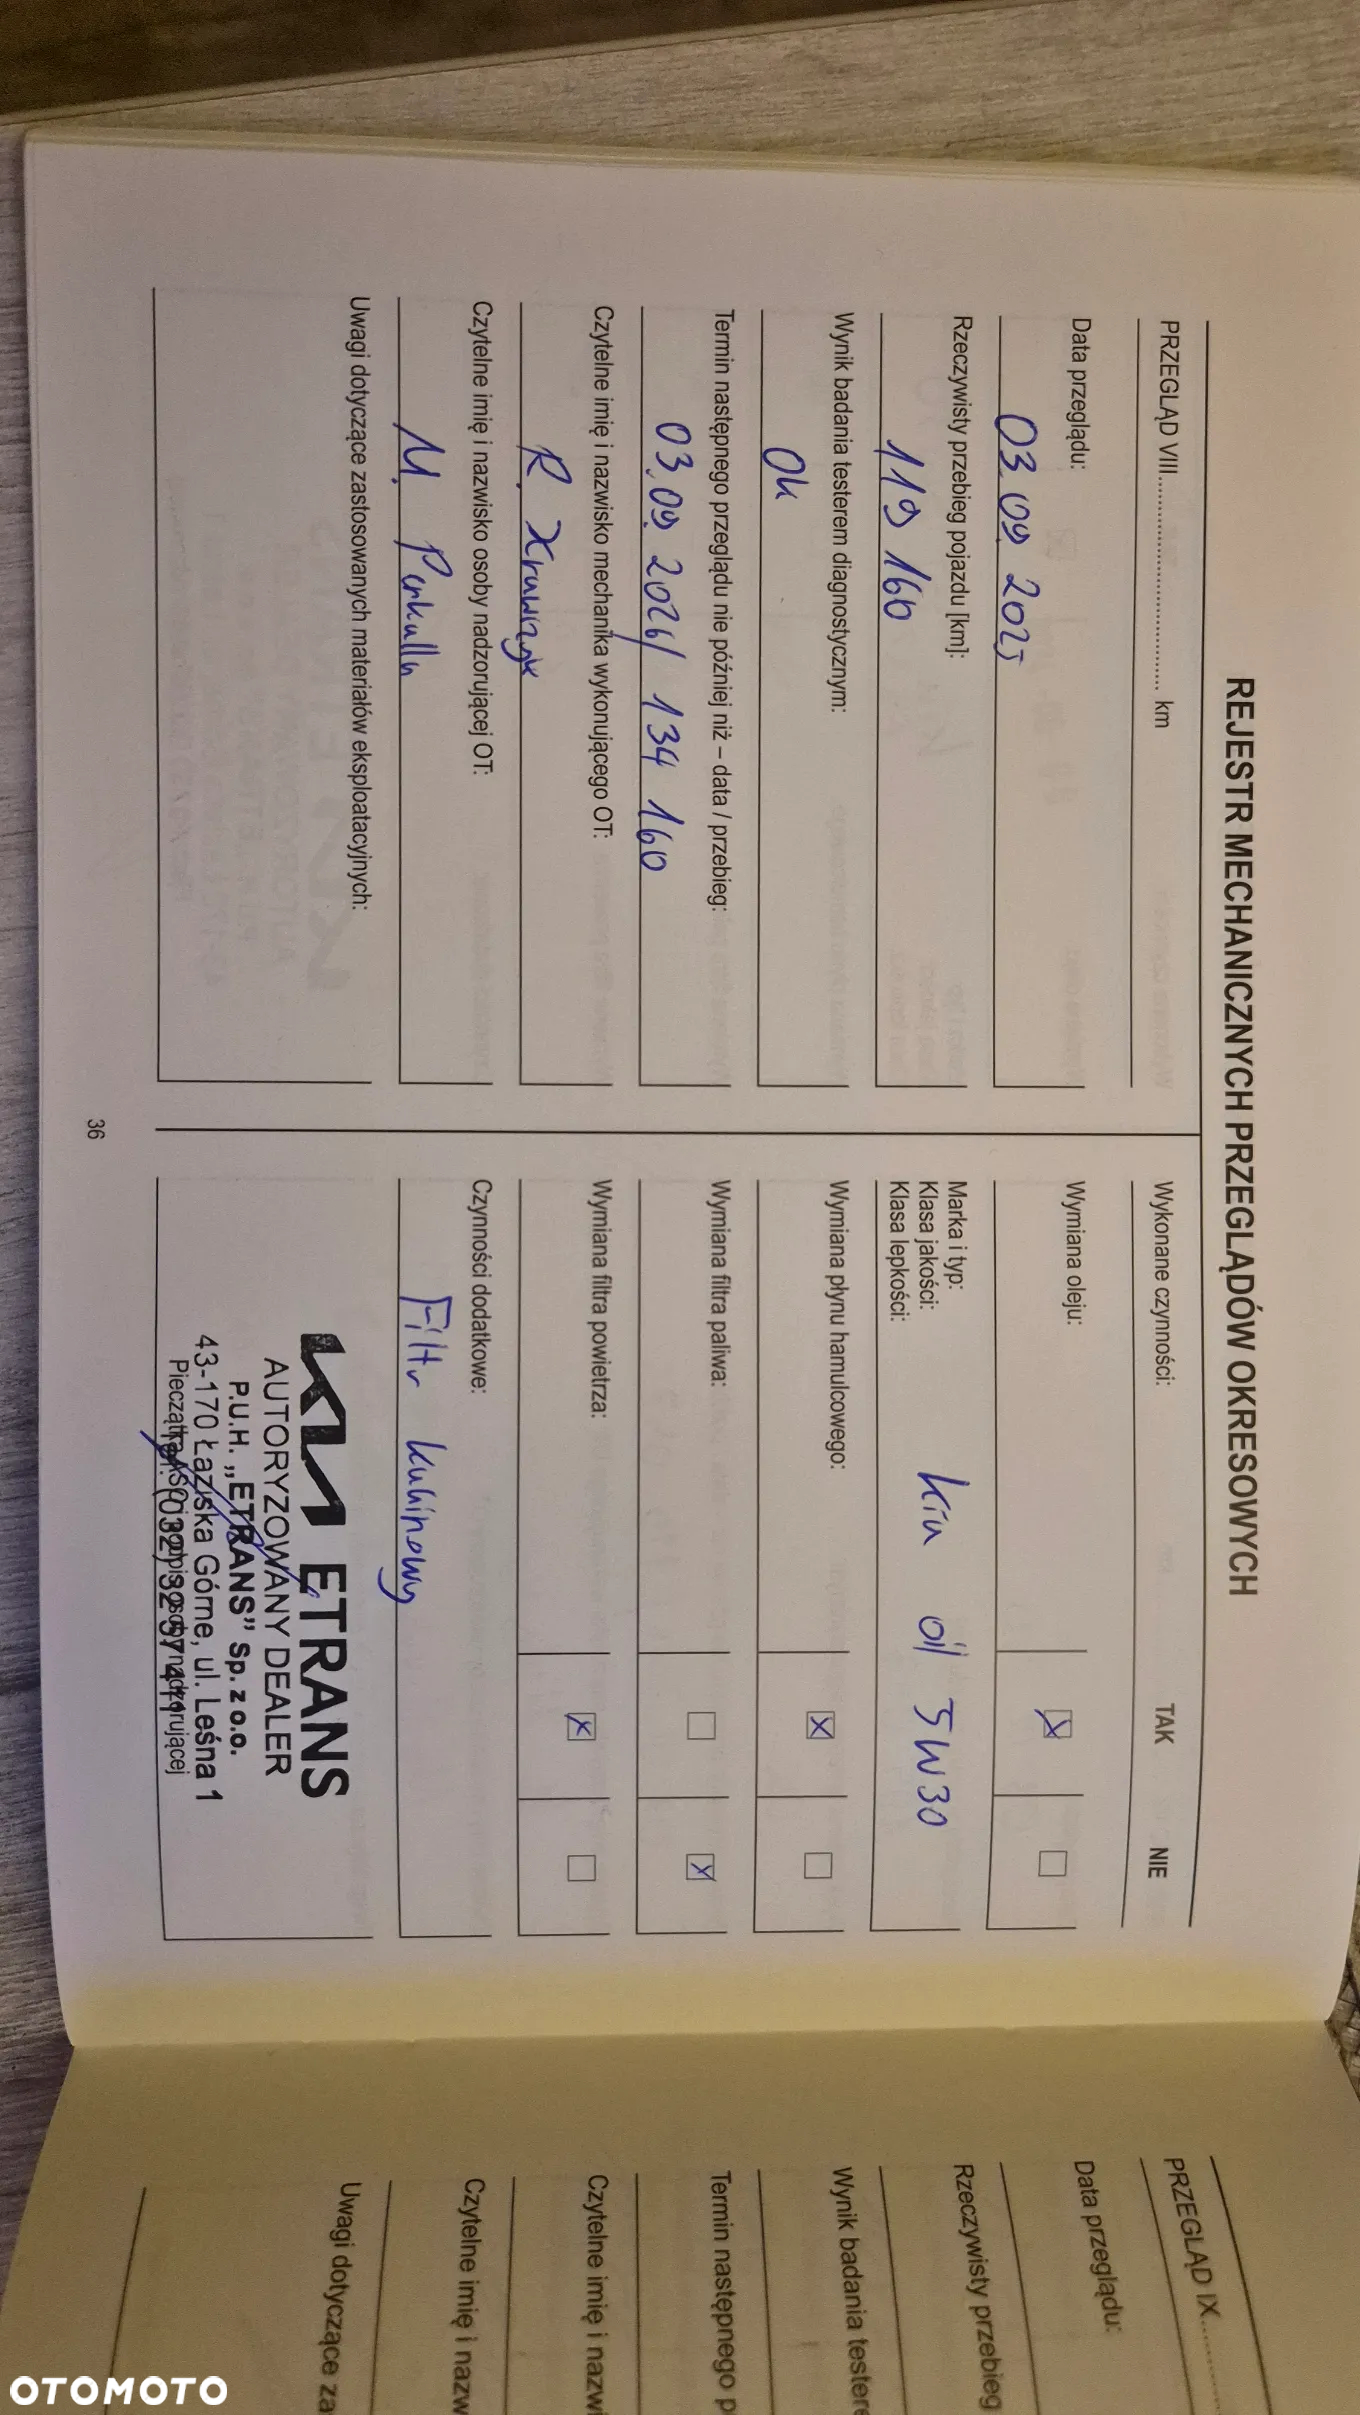 REJESTR MECHANICZNYCH PRZEGLĄDÓW OKRESOWYCH
PRZEGLĄD VIII................................ km
Data przeglądu:
03.09.2025
Rzeczywisty przebieg pojazdu [km]:
119 160
Wynik badania testerem diagnostycznym:
Ok
Termin następnego przeglądu nie później niż – data / przebieg:
03.09.2026/ 134 160
Czytelne imię i nazwisko mechanika wykonującego OT:
R.
Czytelne imię i nazwisko osoby nadzorującej OT:
M.
Uwagi dotyczące zastosowanych materiałów eksploatacyjnych:
Wykonane czynności: TAK NIE
Wymiana oleju: X
Marka i typ:
Klasa jakości:
Klasa lepkości:
Kia oil 5W30
Wymiana płynu hamulcowego: X
Wymiana filtra paliwa: X
Wymiana filtra powietrza: X
Czynności dodatkowe:
Filtr kabinowy
KIA ETRANS
AUTORYZOWANY DEALER
P.U.H. „ETRANS" Sp. z o.o.
43-170 Łaziska Górne, ul. Leśna 1
Pieczątka ASO i podpis osoby nadzorującej
36
PRZEGLĄD IX............
Data przeglądu:
Rzeczywisty przebieg
Wynik badania testere
Termin następnego p
Czytelne imię i nazwi
Czytelne imię i nazw
Uwagi dotyczące za
OTOMOTO